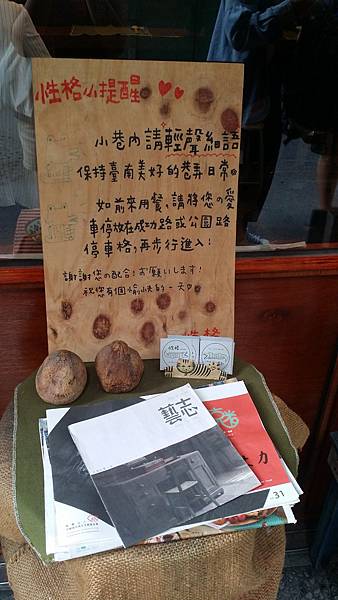 性格小提醒
小巷內請輕聲細語
保持臺南美好的巷弄日常。
如前來用餐，請將您の愛
車停放在成功路或公園路
停車格，再步行進入！
謝謝您の配合！お願いします！
祝您有個愉快的一天
性格
藝志
力
31